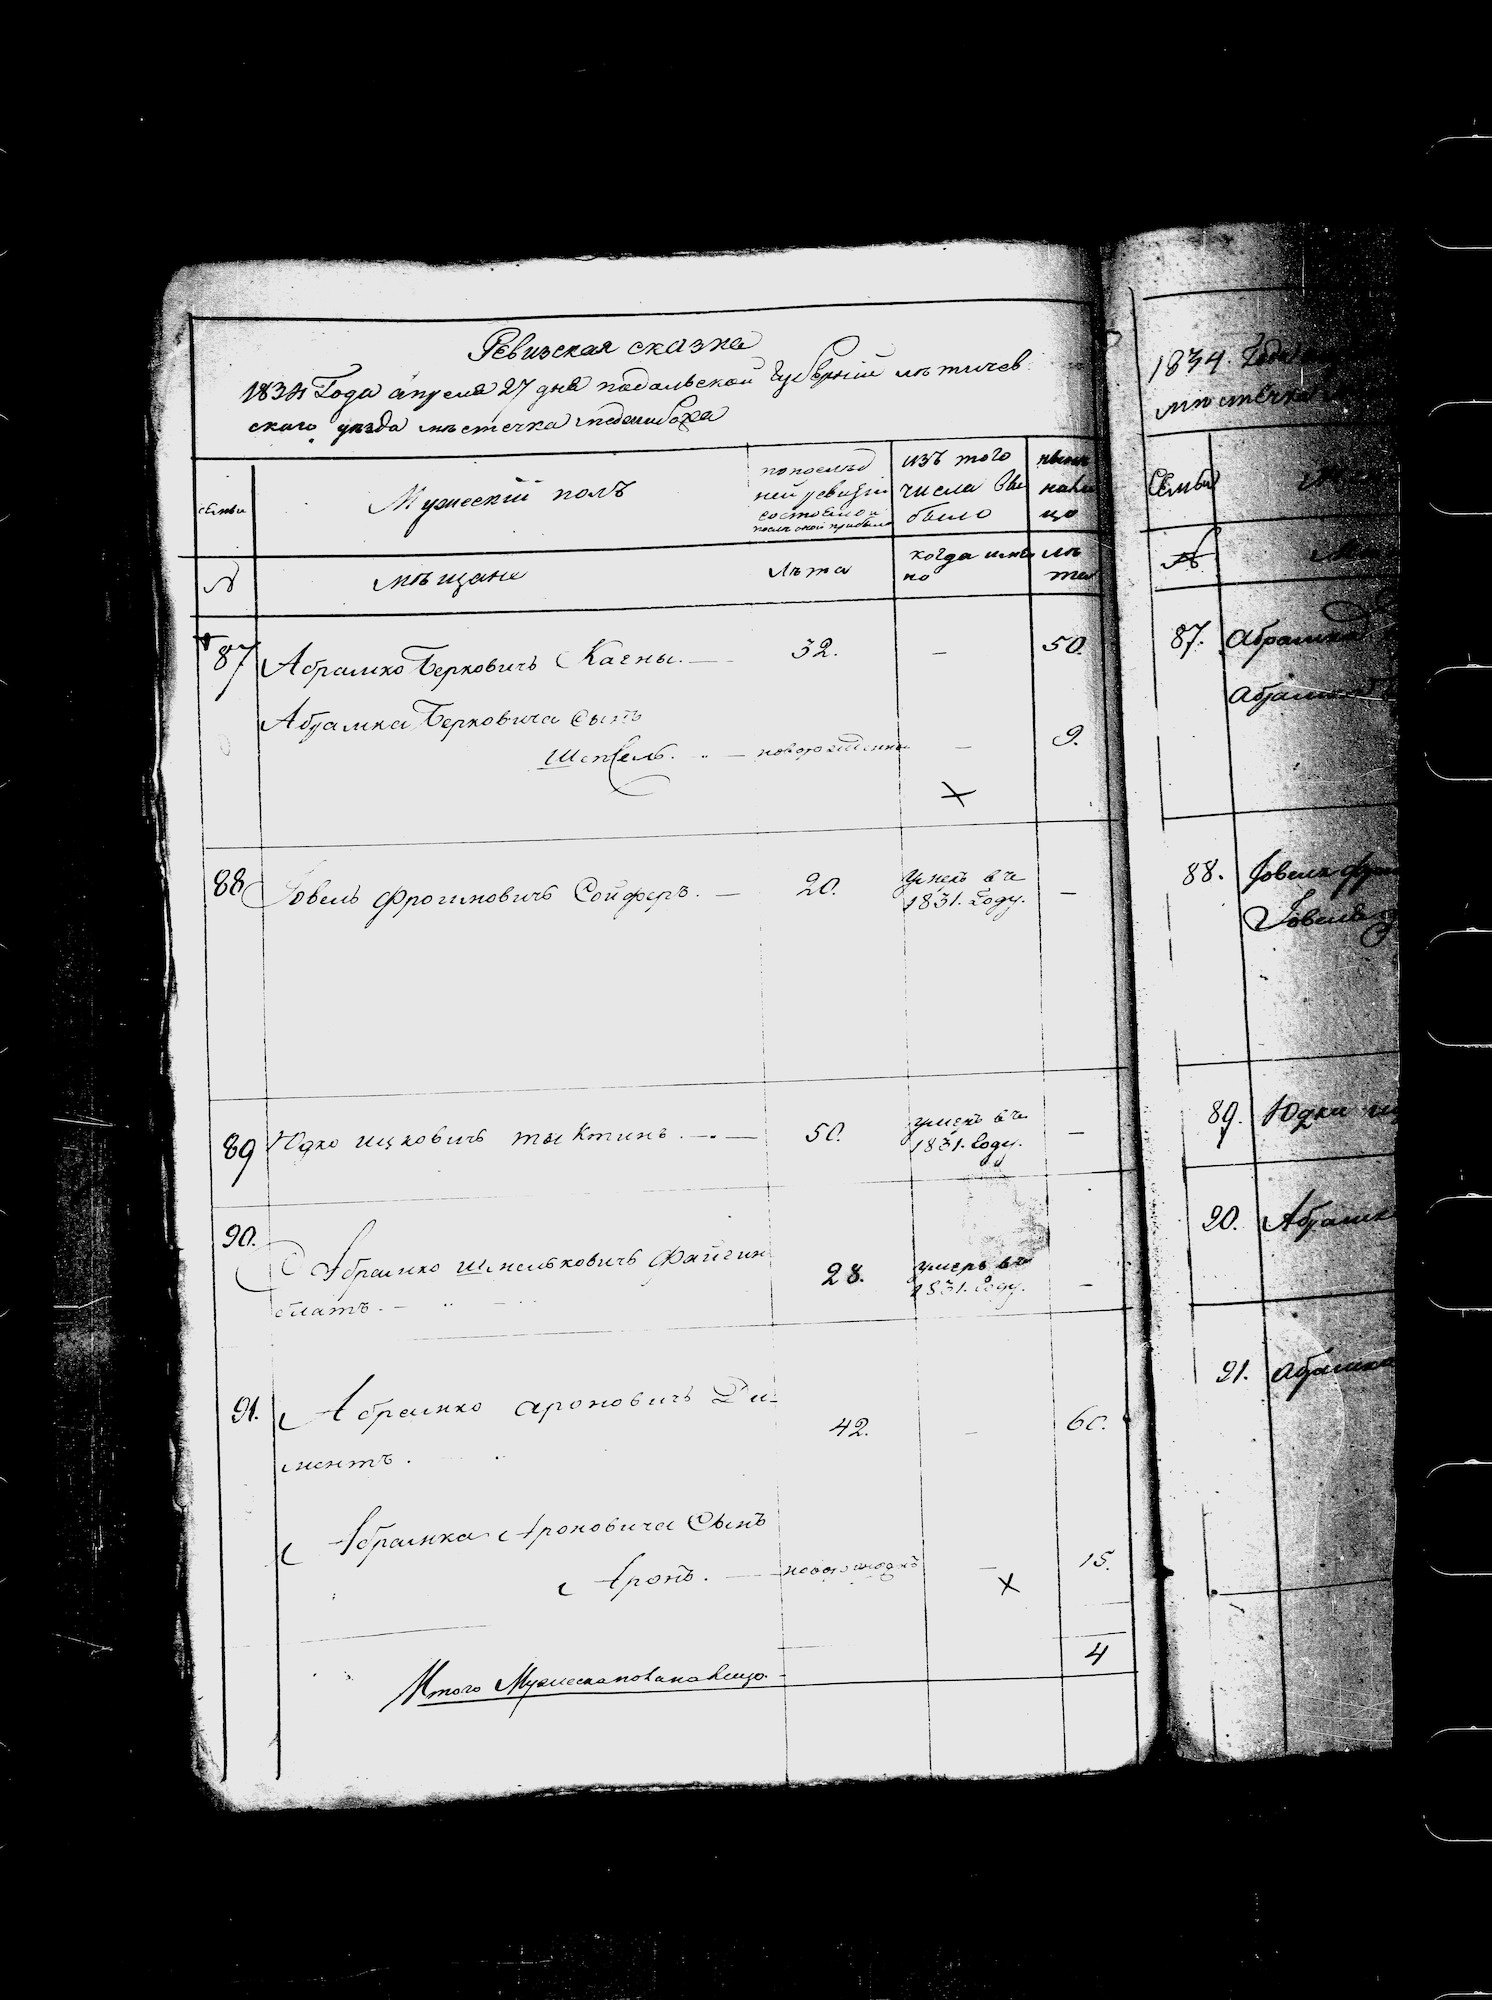 Ревизская сказка
1834 Года апреля 27 дня подольской Губерніи летичев
скаго уезда местечка меджибожа
семьи
Мужескій полъ
по послед
ней ревизіи
состояло и
после оной прибыло
изъ того
числа вы
было
ныне
на ли
цо
№
мещане
лета
когда имен
но
ле
та
87 Абрамко Берковичъ Кагны. — 32. — 50.
Абрамка Берковича Сынъ
Шепсель. — новорожденны — 9.
88 Іовель Фроимовичъ Сойферъ. — 20. умеръ въ
1831. Году. —
89 Юдко ицковичъ тыктинъ. — 50. умеръ въ
1831. Году. —
90. Абрамко шмельковичъ Файгин
блатъ. — 28. умеръ въ
1831. Году. —
91. Абрамко ароновичъ Ди-
ментъ. 42. — 60.
Абрамка Ароновича Сынъ
Аронъ. — новорожденъ — 15.
Итого Мужеска пола на лицо. - 4
1834. Года
местечка
Семьи
№
87. Абрамка
Абрамка
88. Іовеля
Іовеля
89. Юдки
90. Абрамк
91. Абрамка